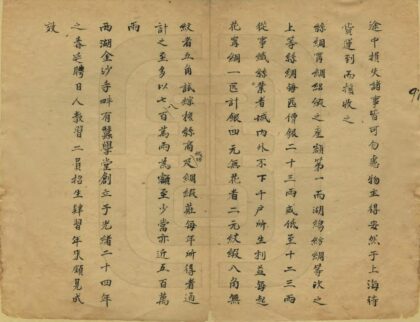 途中損失諸事皆可勿慮物主得安然于上海待
貨運到而接收之
絲綢羅綢綴紋之產額第一而湖縐紡綢等次之
上等絲綢每匹價銀二十三兩或低至十二三兩
從事織絲業者城內外不下千戶所生利益每起
花寧綢一匹計銀四元無花者二元紋緞八角無
紋者五角試綜核絲商及綢緞莊每年所得者通
計之至多以七八百萬兩為額至少當亦近五百萬
兩
西湖金沙寺畔有蠶學堂創立于光緒二十四年
之春延聘日人教習二員招生肄習年來頗見成
效
9